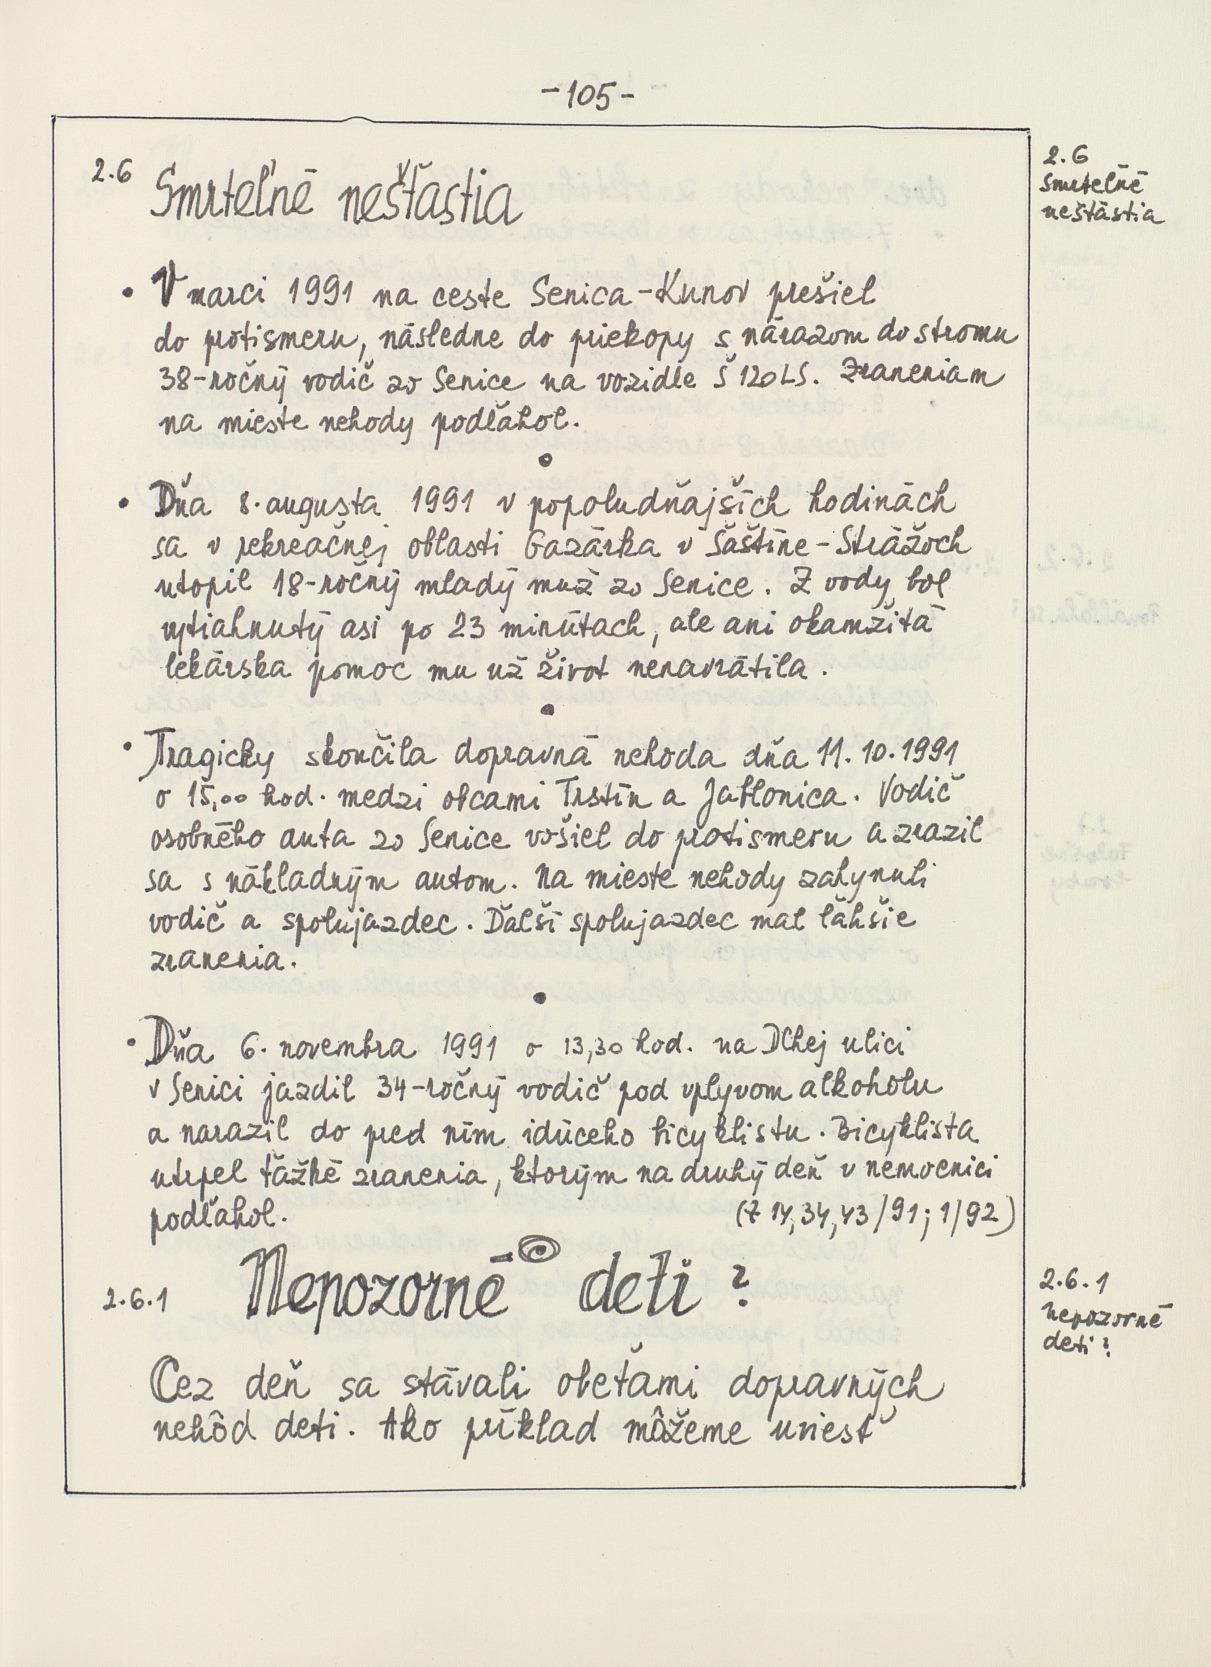 -105-
2.6 Smrteľné nešťastia
2.6
Smrteľné
nešťastia
• V marci 1991 na ceste Senica-Kunov prešiel
do protismeru, následne do priekopy s nárazom do stromu
38-ročný vodič zo Senice na vozidle Š 120LS. Zraneniam
na mieste nehody podľahol.
• Dňa 8. augusta 1991 v popoludňajších hodinách
sa v rekreačnej oblasti Gazárka v Šaštíne-Strážoch
utopil 18-ročný mladý muž zo Senice. Z vody bol
vytiahnutý asi po 23 minútach, ale ani okamžitá
lekárska pomoc mu už život nenavrátila.
• Tragicky skončila dopravná nehoda dňa 11.10.1991
o 15,00 hod. medzi obcami Trstín a Jablonica. Vodič
osobného auta zo Senice vošiel do protismeru a zrazil
sa s nákladným autom. Na mieste nehody zahynuli
vodič a spolujazdec. Ďalší spolujazdec mal ľahšie
zranenia.
• Dňa 6. novembra 1991 o 13,30 hod. na Dlhej ulici
v Senici jazdil 34-ročný vodič pod vplyvom alkoholu
a narazil do pred ním idúceho bicyklistu. Bicyklista
utrpel ťažké zranenia, ktorým na druhý deň v nemocnici
podľahol. (Z 14,34,43/91; 1/92)
2.6.1 Nepozorné deti?
2.6.1
nepozorné
deti?
Cez deň sa stávali obeťami dopravných
nehôd deti. Ako príklad môžeme uviesť